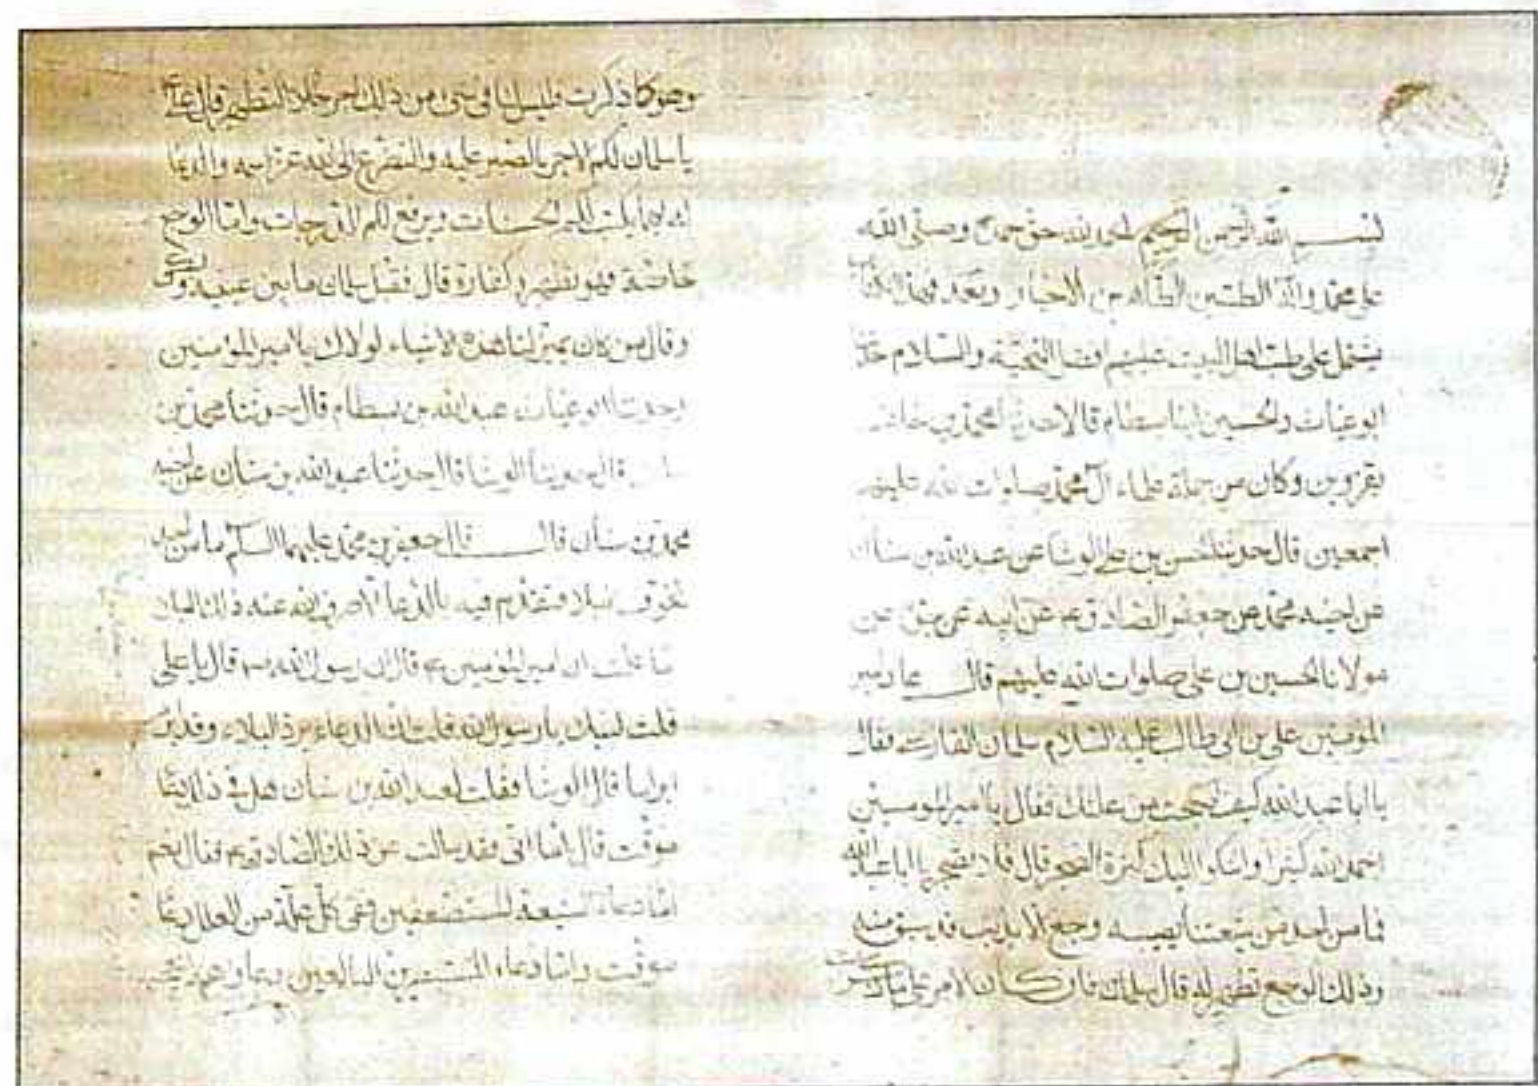 بسم الله الرحمن الرحيم الحمد لله حق حمده وصلى الله
على محمد وآله الطيبين الطاهرين الاخيار وبعد فهذا الكتاب
يشتمل على طب اهل البيت عليهم افضل التحية والسلام
ابو عتاب والحسين ابنا بسطام قالا حدثنا محمد بن خلف
بقزوين وكان من جملة علماء آل محمد صلوات الله عليهم
اجمعين قال حدثنا الحسن بن علي الوشا عن عبد الله بن سنان
عن اخيه محمد عن جعفر الصادق ع عن ابيه عن جده عن
مولانا الحسين بن علي صلوات الله عليهم قال عاد امير
المؤمنين علي بن ابي طالب عليه السلام سلمان الفارسي فقال
يا ابا عبد الله كيف اصبحت من علتك فقال يا امير المؤمنين
احمد الله كثيرا واشكو اليك كثرة الضجر قال فلا تضجر يا ابا عبد الله
فما من احد من شيعتنا يصيبه وجع الا بذنب قد سبق منه
وذلك الوجع تطهير له قال سلمان فان كان الامر على ما ذكرت
وهو كما ذكرت فليس لنا في شيء من ذلك اجر خلا التطهير قال علي ع
يا سلمان لكم الاجر بالصبر عليه والتضرع الى الله عز اسمه والدعا
له بهما يكتب لكم الحسنات ويرفع لكم الدرجات واما الوجع
خاصة فهو تطهير وكفارة قال فقبل سلمان ما بين عينيه وبكى
وقال من كان يميز لنا هذه الاشياء لولاك يا امير المؤمنين
حدثنا ابو عتاب عبد الله بن بسطام قال حدثنا محمد بن
خلف قال حدثنا الوشا قال حدثنا عبد الله بن سنان عن اخيه
محمد بن سنان قال قال جعفر بن محمد عليهما السلم ما من احد
تخوف البلا فتقدم فيه بالدعا الا صرف الله عنه ذلك البلا
اما علمت ان امير المؤمنين ع قال ان رسول الله ص قال يا علي
قلت لبيك يا رسول الله قال ان الدعاء يرد البلاء وقد ابرم
ابراما قال الوشا فقلت لعبد الله بن سنان هل في ذلك دعا
موقت قال اما اني فقد سالت عن ذلك الصادق ع فقال نعم
اما دعاء الشيعة المستضعفين ففي كل علة من العلل دعا
موقت واما دعاء المستبصرين البالغين